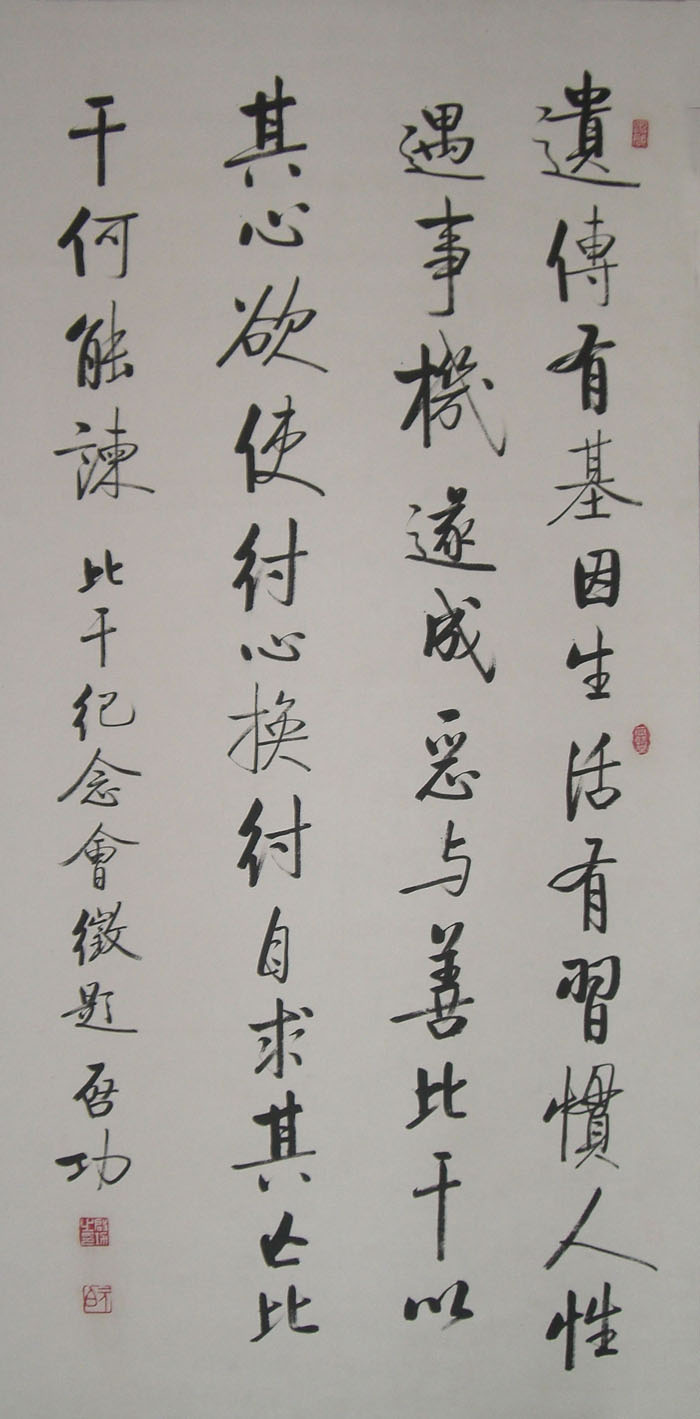 遺傳有基因生活有習慣人性
遇事機遂成惡与善比干以
其心欲使紂心換紂自求其亡比
干何能諫 比干紀念會徵題 啓功